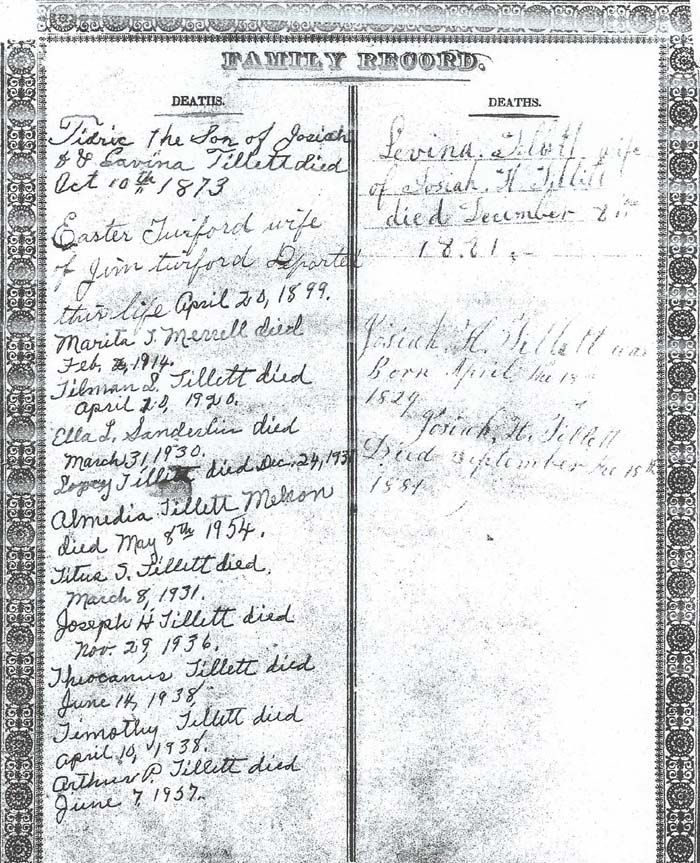 FAMILY RECORD.
DEATHS.
Tidric the Son of Josiah
& Lavina Tillett died
Oct 10th 1873
Easter Twiford wife
of Jim twiford Departed
thir life April 20, 1899.
Marita T. Merrell died
Feb. 1914.
Tilman S. Tillett died
April 20, 1920.
Ella L. Sanderlin died
March 31, 1930.
Tillett died Dec. 24, 193
Almedia Tillett Melson
died May 8th 1954.
Titus S. Tillett died,
March 8, 1931.
Joseph H Tillett died
Nov. 29, 1936.
Theocanus Tillett died
June 14, 1938,
Timothy Tillett died
April 10, 1938.
Arthur P. Tillett died
June 7, 1957.
DEATHS.
Levina. Tillett wife
of Josiah. H Tillett
died December 8th
1881
Josiah. H. Tillett was
Born April the
1829
Josiah. H. Tillett
Died September the 18th
1881